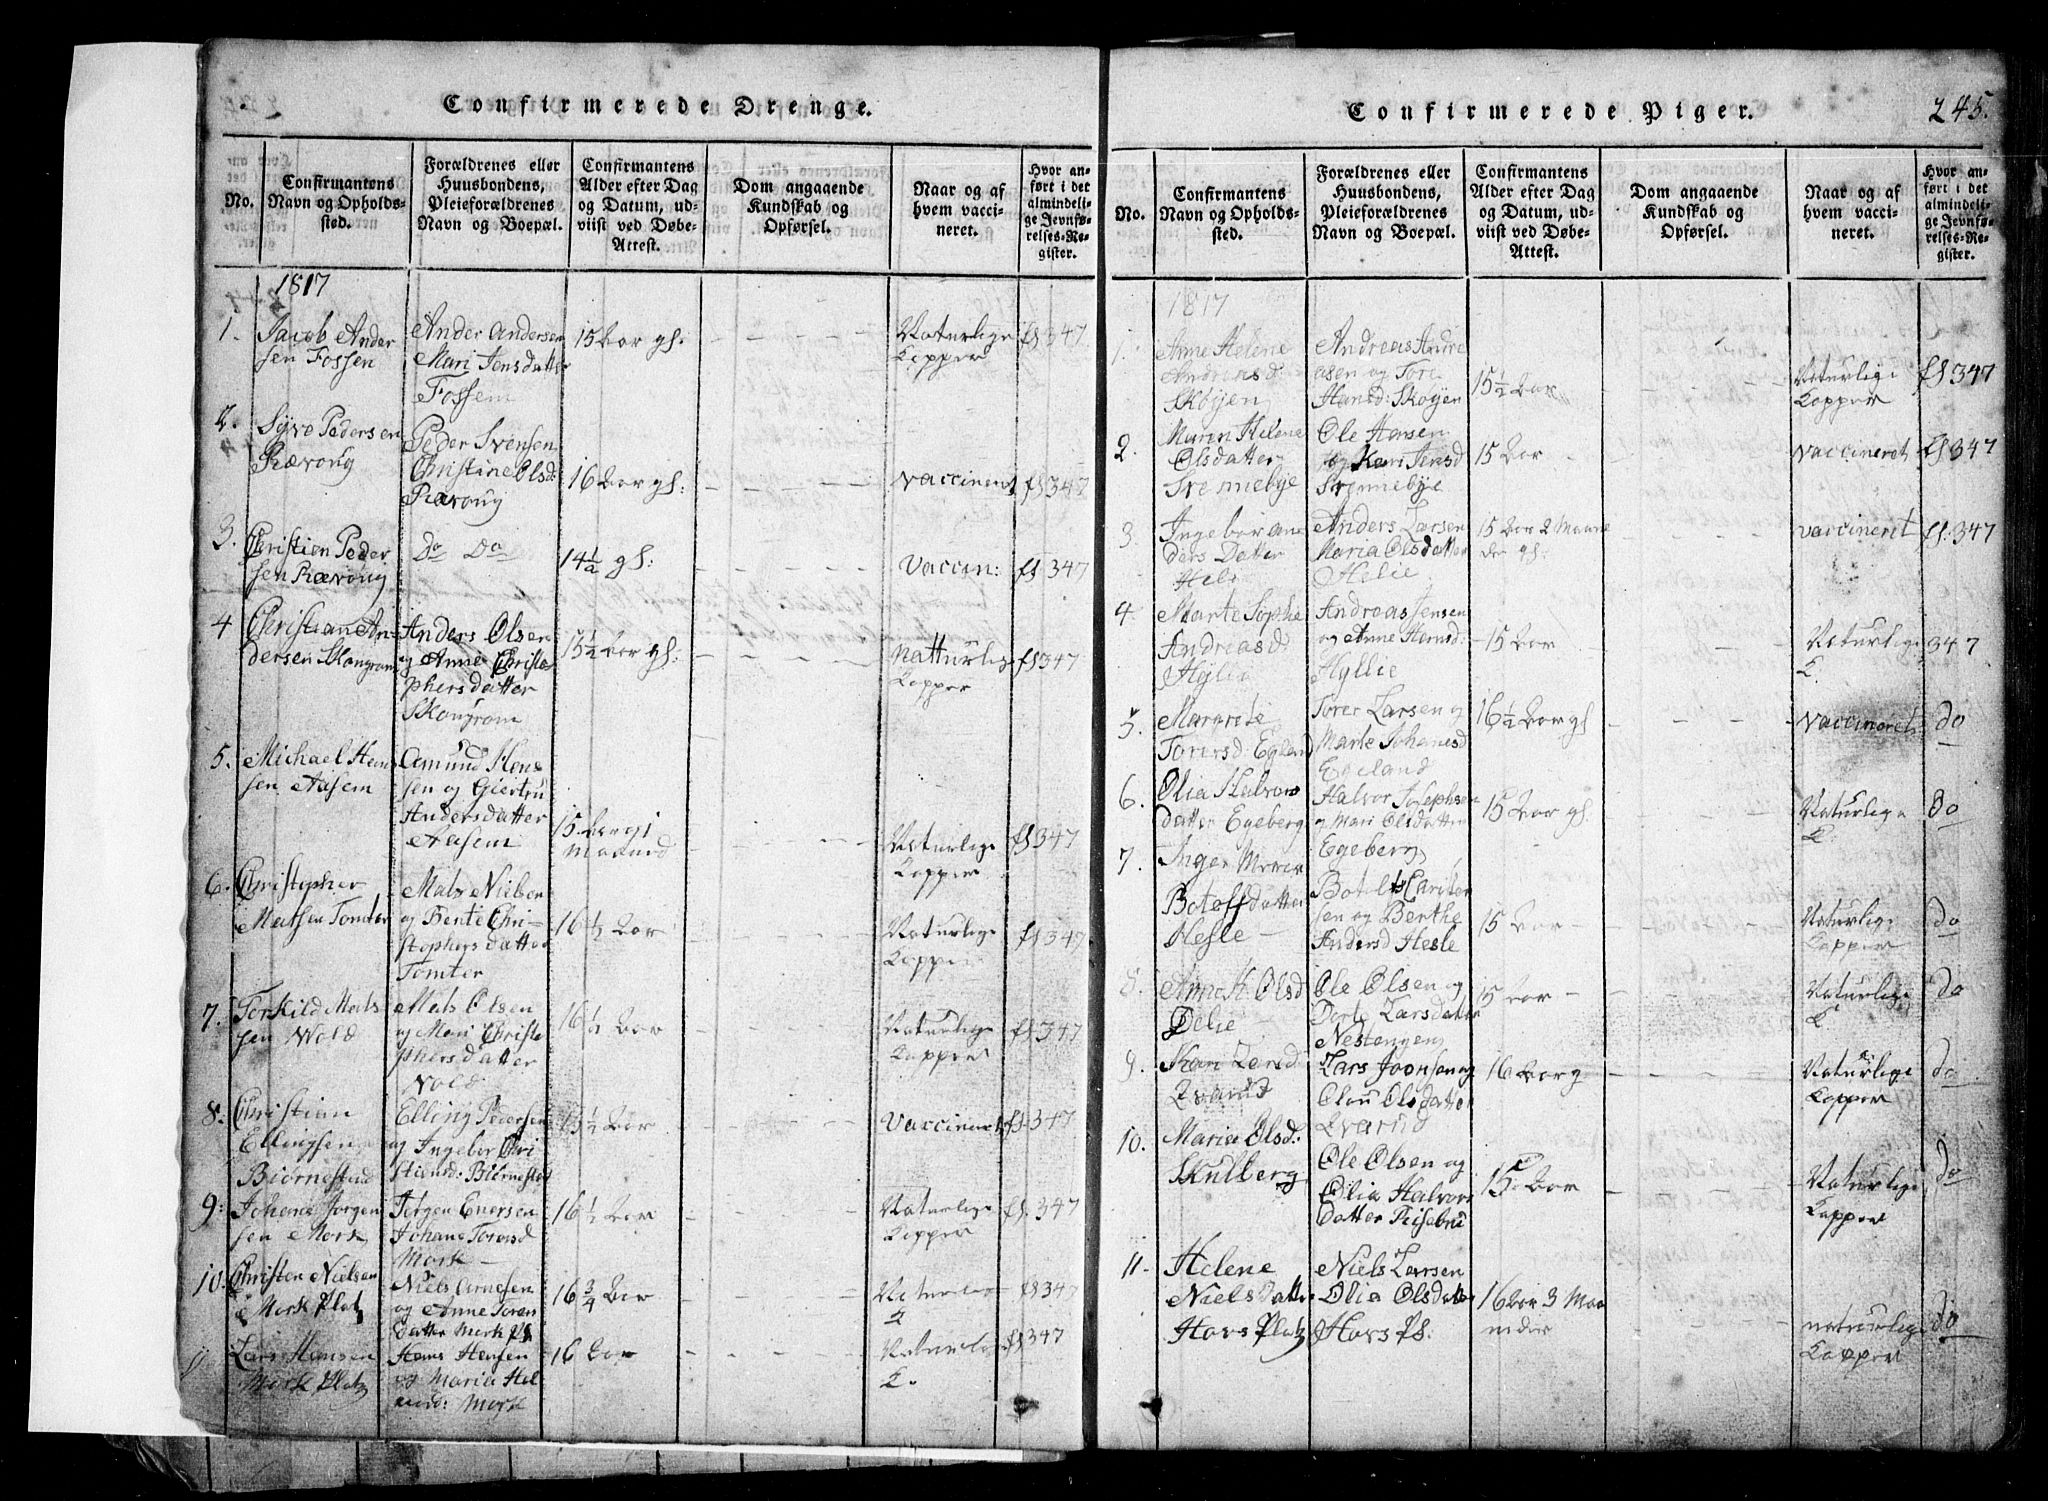 Confirmerede Drenge.
No.
Confirmantens
Navn og Opholds-
sted.
Forældrenes eller
Huusbondens,
Pleieforældrenes
Navn og Boepæl.
Confirmantens
Alder efter Dag
og Datum, ud-
viist ved Døbe-
Attest.
Dom angaaende
Kundskab og
Opførsel.
Naar og af
hvem vacci-
neret.
Hvor an-
ført i det
almindeli-
ge Jevnfø-
relses-Re-
gister.
1817
1.
Jacob Ander
sen Fossen
Ander Andersen
Mari Jensdatter
Fossem
15 Aar gl:
Naturlige
Kopper
fl 347
2.
Syve Pedersen
Rævoug
Peder Svensen
Christine Olsd:
Rævoug
16 Aar gl:
vaccineret
fl 347
3.
Christien Peder
sen Rævoug
Do Do
14½ gl:
Vaccin:
fl 347
4
Christian An-
dersen Skougrom
Anders Olsen
og Anne Christo
phersdatter
Skougrom
15½ Aar gl:
Natturlige
Kopper
fl 347
5.
Michael Hen
sen Aasem
Amund Hen
sen og Giertru
Andersdatter
Aasem
15. Aar gl
Maaned
Naturlige
Kopper
fl 347
6.
Christopher
Matsen Tomter
Mats Nielsen
og Bente Chri-
stophersdatter
Tomter
16½ Aar
Naturlige
Kopper
fl 347
7.
Torkild Mats
sen Wold
Mats Olsen
og Mari Christo
phersdatter
Wold
16½ Aar
Naturlige
Kopper
fl 347
8.
Christian
Ellingsen
Biørnestad
Elling Pedersen
og Ingebor Chri
stiensd: Biørnestad
15½ Aar
Vaccineret
fl 347
9:
Johane Jorgen
sen Mork
Jørgen Enersen
Johane Torersd
Mork
16½ Aar
Naturlige
Kopper
fl. 347
10.
Christen Nielsen
Mork Platz
Niels Arnesen
og Anne Toren
datter Mork Pl
16¾ Aar
Naturlig
K
fl 347
11
Lars Hansen
Mork Platz
Hans Hansen
og Maria Hel
Mork
16 Aar
Naturlig
K.
fl 347
Confirmerede Piger.
245.
No.
Confirmantens
Navn og Opholds-
sted.
Forældrenes eller
Huusbondens,
Pleieforældrenes
Navn og Boepæl.
Confirmantens
Alder efter Dag
og Datum, ud-
viist ved Døbe-
Attest.
Dom angaaende
Kundskab og
Opførsel.
Naar og af
hvem vacci-
neret.
Hvor an-
ført i det
almindeli-
ge Jevnfø-
relses-Re-
gister.
1817
1.
Anne Helene
Andreasd
Skøyen
Andreas Andre
asen og Tore
Hansd: Skøyen
15½ Aar
Naturlige
Kopper
fl 347
2.
Maren Helene
Olsdatter
Svennebye
Ole Hansen
og Kari Jensd
Svennebye
15 Aar
vaccineret
fl. 347
3.
Ingebor An
ders Datter
Helie
Anders Larsen
Maria Olsdatter
Helie
15 Aar 2 Maane
der gl:
vaccineret
fl. 347
4
Marte Sophie
Andreasd
Hylie
Andreas Jensen
og Anne Hansd
Hyllie
15 Aar
Naturlige
K.
347
5.
Margrete
Torersd: Egland
Torer Larsen og
Marte Johanesd
Egeland
16½ Aar gl
Vaccineret
do
6.
Olia Halvors
datter Egeberg
Halvor Josephsen
og Mari Olsdatter
Egeberg
15 Aar gl.
Naturlige
K
do
7.
Inger
Botolfsdatter
Hesle
Christen
sen og Berthe
Andersd Hesle
15 Aar
Naturlige
Kopper
do
8.
Anne K Olsd
Delie
Ole Olsen og
Dorte Larsdatter
Nestengen
15 Aar
Naturlige
K
do
9.
Kari Larsd
Kvarud
Lars Joonsen og
Olou Olsdatter
Kvarud
16 Aar g
Naturlige
Kopper
do
10.
Maria Olsd:
Skulberg
Ole Olsen og
Olia Halvors
datter Risebru
15 Aar
Naturlige
Kopper
do
11.
Helene
Nielsdatter
Hovs Platz
Niels Larsen
Olia Olsdatter
Hovs Pl.
16 Aar 3 Maa
neder
naturlige
Kopper
do